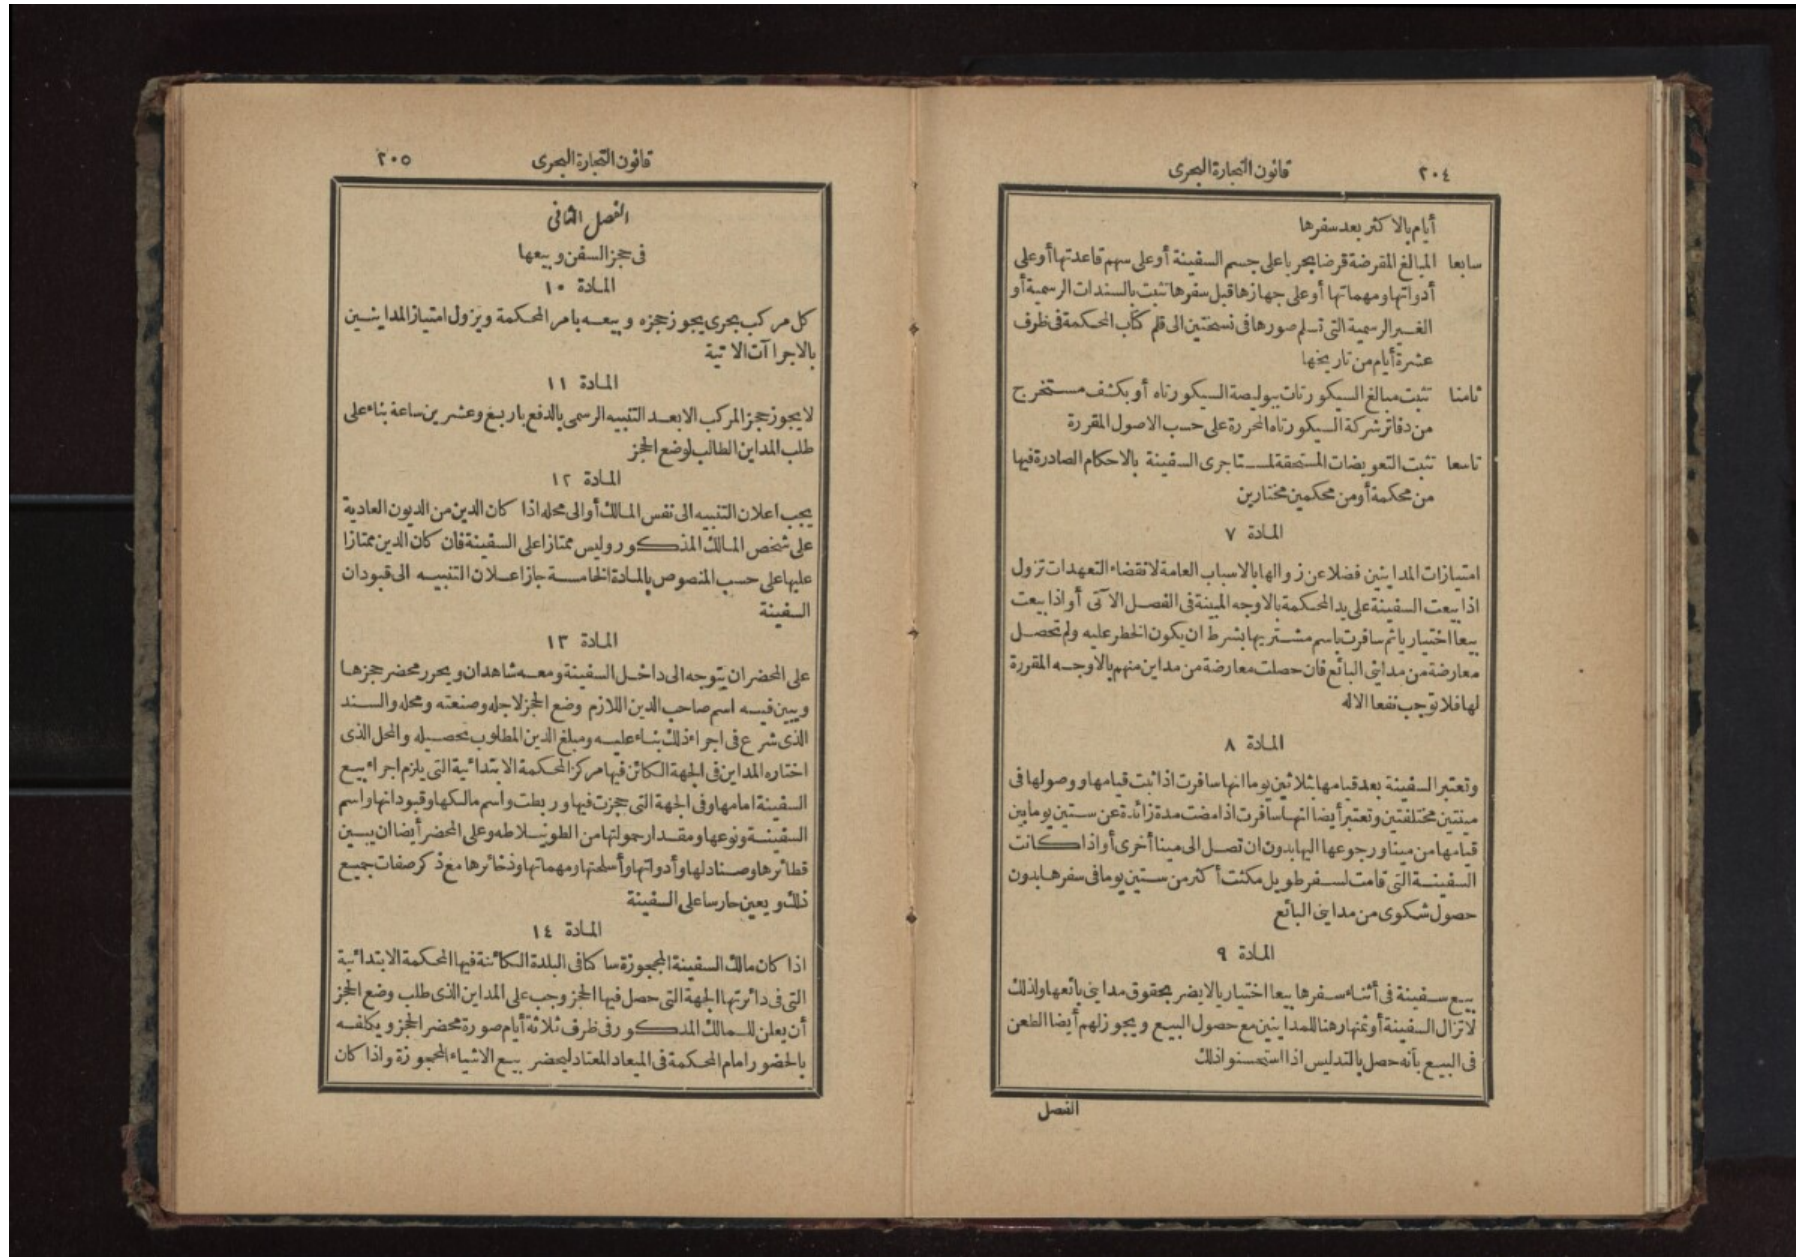 ٢٠٤
قانون التجارة البحرى
أيام بالاكثر بعد سفرها
سابعا المبالغ المقرضة قرضا بحريا على جسم السفينة أو على سهم قاعدتها أو على
أدواتها ومهماتها أو على جهازها قبل سفرها تثبت بالسندات الرسمية أو
الغير الرسمية التى تسلم صورها فى نسختين الى قلم كتاب المحكمة فى ظرف
عشرة أيام من تاريخها
ثامنا تثبت مبالغ السيكورتات ببوليصة السيكورتاه أو بكشف مستخرج
من دفاتر شركة السيكورتاه المحررة على حسب الاصول المقررة
تاسعا تثبت التعويضات المستحقة لمستاجرى السفينة بالاحكام الصادرة فيها
من محكمة أو من محكمين مختارين
المادة ٧
امتيازات المداينين فضلا عن زوالها بالاسباب العامة لانقضاء التعهدات تزول
اذا بيعت السفينة على يد المحكمة بالاوجه المبينة فى الفصل الآتى أو اذا بيعت
بيعا اختياريا ثم سافرت باسم مشتريها بشرط ان يكون الخطر عليه ولم تحصل
معارضة من مداينى البائع فان حصلت معارضة من مداين منهم بالاوجه المقررة
لها فلا توجب نفعا الا له
المادة ٨
وتعتبر السفينة بعد قيامها بثلاثين يوما انها سافرت اذا ثبت قيامها ووصولها فى
مينتين مختلفتين وتعتبر أيضا انها سافرت اذا مضت مدة زائدة عن ستين يوما بين
قيامها من مينا ورجوعها اليها بدون ان تصل الى مينا أخرى أو اذا كانت
السفينة التى قامت لسفر طويل مكثت أكثر من ستين يوما فى سفرها بدون
حصول شكوى من مداينى البائع
المادة ٩
بيع سفينة فى أثناء سفرها بيعا اختياريا لا يضر بحقوق مداينى بائعها ولذلك
لا تزال السفينة أو ثمنها رهنا للمداينين مع حصول البيع ويجوز لهم أيضا الطعن
فى البيع بأنه حصل بالتدليس اذا استحسنوا ذلك
الفصل
قانون التجارة البحرى
٢٠٥
الفصل الثانى
فى حجز السفن وبيعها
المادة ١٠
كل مركب بحرى يجوز حجزه وبيعه بامر المحكمة ويزول امتياز المداينين
بالاجراآت الاتية
المادة ١١
لا يجوز حجز المركب الا بعد التنبيه الرسمى بالدفع باربع وعشرين ساعة بناء على
طلب المداين الطالب لوضع الحجز
المادة ١٢
يجب اعلان التنبيه الى نفس المالك أو الى محله اذا كان الدين من الديون العادية
على شخص المالك المذكور وليس ممتازا على السفينة فان كان الدين ممتازا
عليها على حسب المنصوص بالمادة الخامسة جاز اعلان التنبيه الى قبودان
السفينة
المادة ١٣
على المحضر ان يتوجه الى داخل السفينة ومعه شاهدان ويحرر محضر حجزها
ويبين فيه اسم صاحب الدين اللازم وضع الحجز لاجله وصنعته ومحله والسند
الذى شرع فى اجراء ذلك بناء عليه ومبلغ الدين المطلوب تحصيله والمحل الذى
اختاره المداين فى الجهة الكائن فيها مركز المحكمة الابتدائية التى يلزم اجراء بيع
السفينة امامها وفى الجهة التى حجزت فيها وربطت واسم مالكها وقبودانها واسم
السفينة ونوعها ومقدار حمولتها من الطونيلاطه وعلى المحضر أيضا ان يبين
قطائرها وصنادلها وأدواتها وأسلحتها ومهماتها وذخائرها مع ذكر صفات جميع
ذلك ويعين حارسا على السفينة
المادة ١٤
اذا كان مالك السفينة المحجوزة ساكنا فى البلدة الكائنة فيها المحكمة الابتدائية
التى فى دائرتها الجهة التى حصل فيها الحجز وجب على المداين الذى طلب وضع الحجز
أن يعلن للمالك المذكور فى ظرف ثلاثة أيام صورة محضر الحجز ويكلفه
بالحضور امام المحكمة فى الميعاد المعتاد ليحضر بيع الاشياء المحجوزة واذا كان